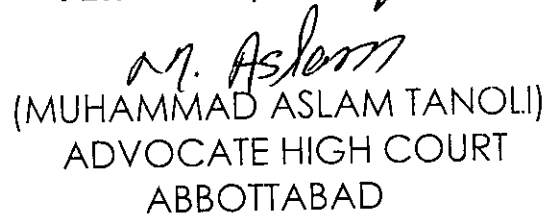 M. Aslam
(MUHAMMAD ASLAM TANOLI)
ADVOCATE HIGH COURT
ABBOTTABAD